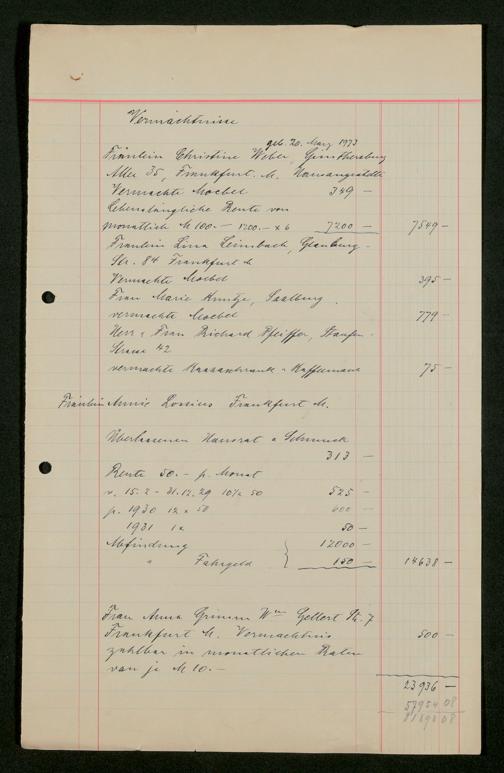 Vermächtnisse
geb. 20. März 1873
Fräulein Christine Weber, Günthersburg
Allee 35, Frankfurt M. Hausangestellte
Vermachte Moebel 349 —
Lebenslängliche Rente von
monatlich M 100.— 1200.— x 6 7200 — 7549 —
Fräulein Lina Leimbach, Glauburg-
Str. 84 Frankfurt M
Vermachte Moebel 395 —
Frau Marie Saalburg
vermachte Moebel 779 —
Herr u Frau Richard Pfeiffer, Staufen-
Strasse 42
vermachte Kassaschrank u 75 —
Fräulein Annie Frankfurt M.
Überlassenen Hausrat u Schmuck
313 —
Rente 50.— p. Monat
v. 15.2 - 31.12.29 10½ 50 525 —
p. 1930 12 x 50 600 —
1931 1 x 50 —
Abfindung 12000 —
" Fahrgeld 150 — 14638 —
Frau Anna Grimm Wwe Gellert Str. 7
Frankfurt M. Vermächtnis 500 —
zahlbar in monatlichen Raten
von je M 10.—
23936 —
57954 08
81890 08